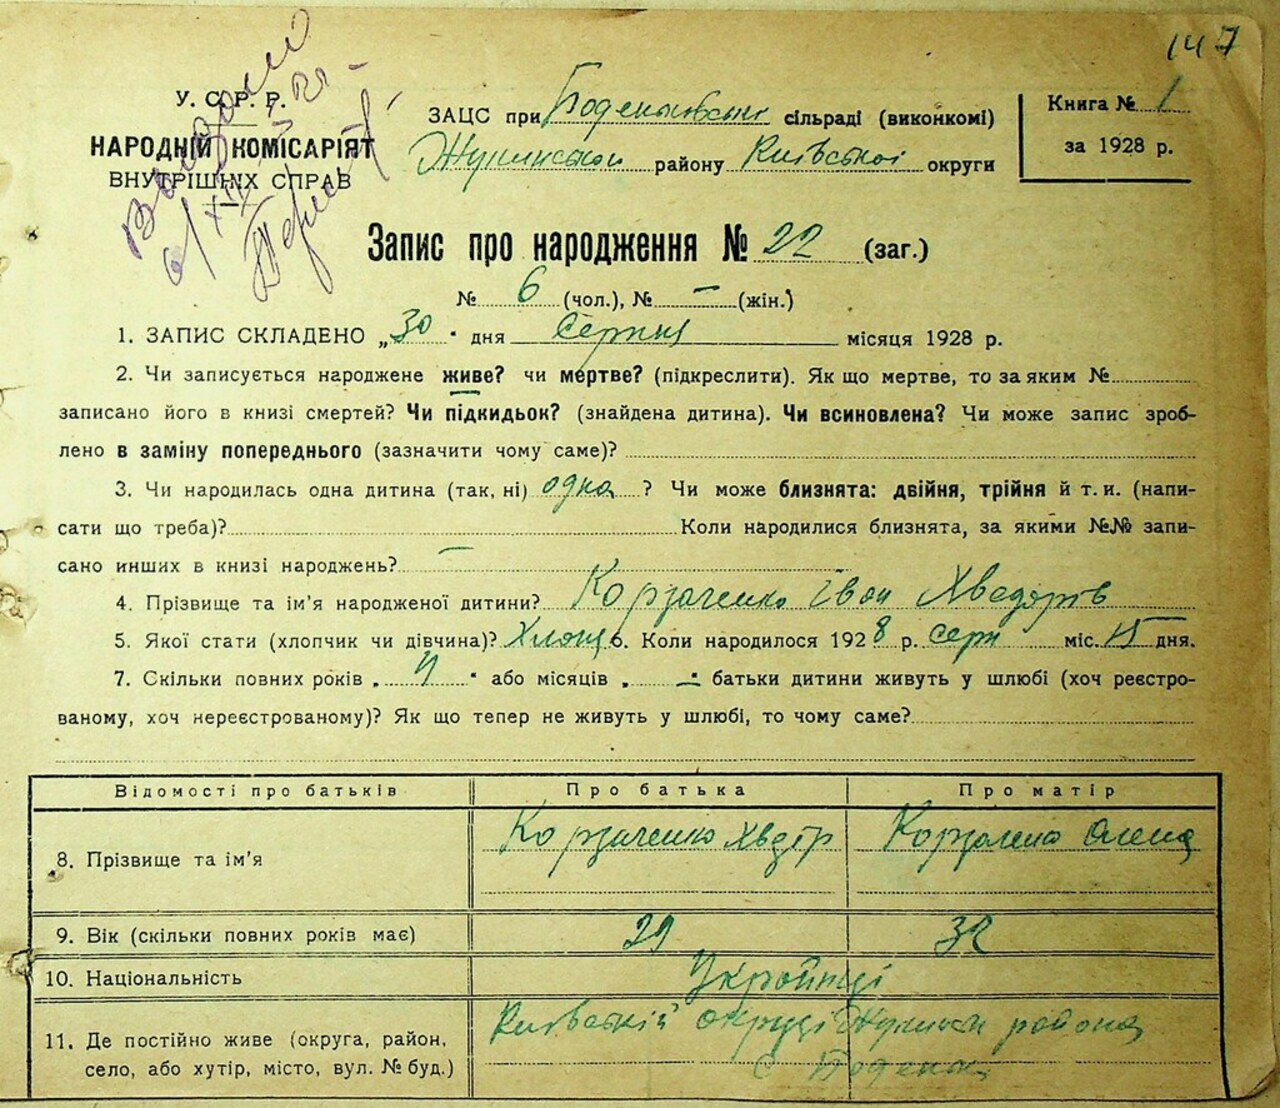 147
У. С. Р. Р.
НАРОДНІЙ КОМІСАРІЯТ
ВНУТРІШНІХ СПРАВ
ЗАЦС при Боденьковські сільраді (виконкомі)
Жукинськой району Київської округи
Книга № 1
за 1928 р.
Запис про народження № 22 (заг.)
№ 6 (чол.), № — (жін.)
1. ЗАПИС СКЛАДЕНО „30" дня Серпня місяця 1928 р.
2. Чи записується народжене живе? чи мертве? (підкреслити). Як що мертве, то за яким №
записано його в книзі смертей? Чи підкидьок? (знайдена дитина). Чи всиновлена? Чи може запис зроб-
лено в заміну попереднього (зазначити чому саме)?
3. Чи народилась одна дитина (так, ні) одна ? Чи може близнята: двійня, трійня й т. и. (напи-
сати що треба)? Коли народилися близнята, за якими №№ запи-
сано инших в книзі народжень? —
4. Прізвище та ім'я народженої дитини? Корзаченко Іван
5. Якої стати (хлопчик чи дівчина)? Хлопц 6. Коли народилося 1928 р. серп міс. 15 дня.
7. Скільки повних років „ " або місяців „ — " батьки дитини живуть у шлюбі (хоч реєстро-
ваному, хоч нереєстрованому)? Як що тепер не живуть у шлюбі, то чому саме?
Відомості про батьків Про батька Про матір
8. Прізвище та ім'я Корзаченко Хведір Корзаченко Олена
9. Вік (скільки повних років має) 29 32
10. Національність Українці
11. Де постійно живе (округа, район, Київській округі Жукинськ района
село, або хутір, місто, вул. № буд.) с Боденьки